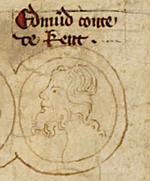 Edmũd conte
de kent .